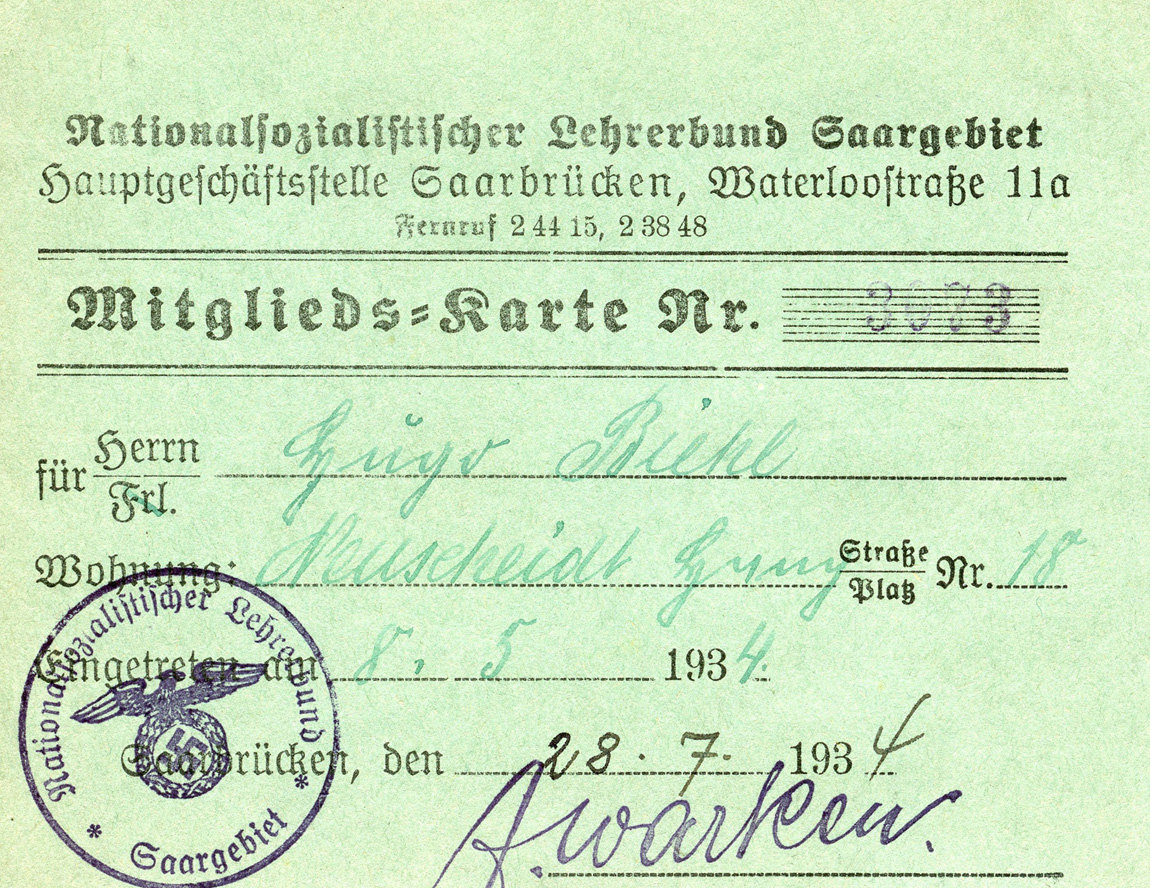 Nationalsozialistischer Lehrerbund Saargebiet
Hauptgeschäftsstelle Saarbrücken, Waterloostraße 11a
Fernruf 2 44 15, 2 38 48
Mitglieds-Karte Nr. 3073
für Herrn
Frl.
Hugo Biehl
Wohnung: Neuscheidt Straße
Platz
Nr. 18
Eingetreten am 8. 5 1934.
Saarbrücken, den 28. 7. 1934
A. Warken.
Nationalsozialistischer Lehrerbund
* Saargebiet *